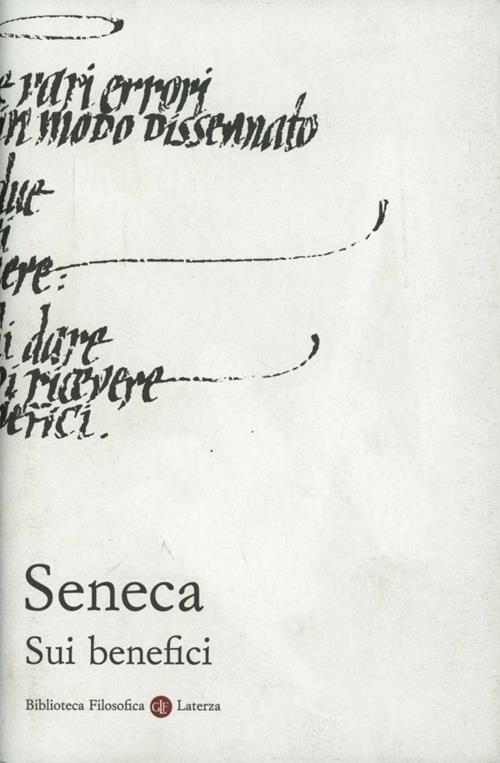 e rari errori
in modo dissennato
due
di
vere:
di dare
di ricevere
benefici.
Seneca
Sui benefici
Biblioteca Filosofica GLF Laterza